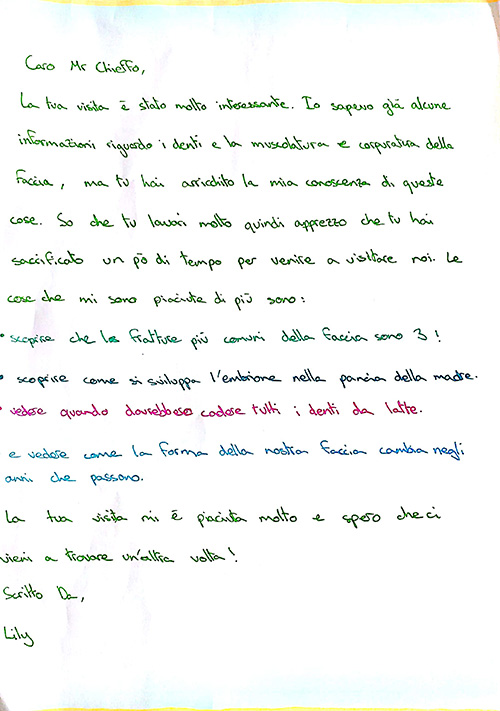 Caro Mr Chieffo,
La tua visita è stato molto interessante. Io sapevo già alcune
informazioni riguardo i denti e la muscolatura e corpuratura della
faccia, ma tu hai arricchito la mia conoscenza di queste
cose. So che tu lavori molto quindi apprezzo che tu hai
sacrificato un pò di tempo per venire a visitare noi. Le
cose che mi sono piaciute di più sono:
• scoprire che le fratture più comuni della faccia sono 3!
• scoprire come si sviluppa l'embrione nella pancia della madre.
• vedere quando dovrebbero cadere tutti i denti da latte.
e vedere come la forma della nostra faccia cambia negli
anni che passano.
La tua visita mi è piaciuta molto e spero che ci
vieni a trovare un'altra volta!
Scritto Da,
Lily